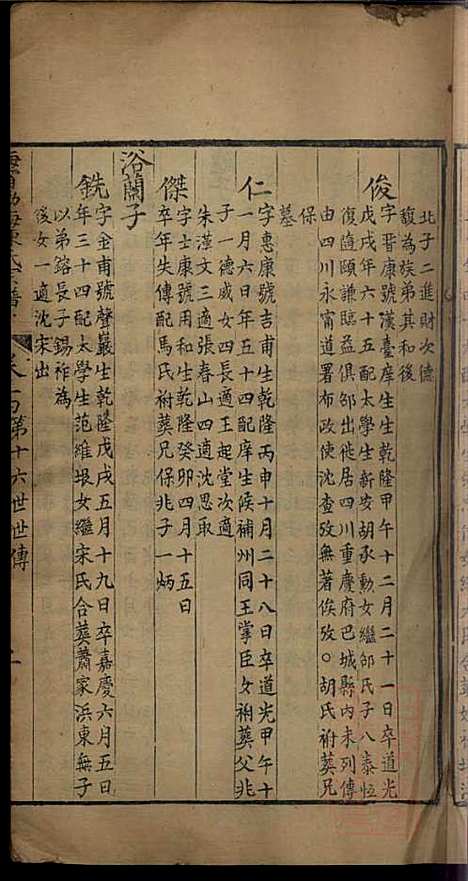 北子二進財次德
馥為族弟其和後
俊
字晋康號漢臺庠生生乾隆甲午十二月二十一日卒道光
戊戌年六十五配太學生新安胡承勳女繼邰氏子八泰恒
復海頤謙臨益俱邰出徙居四川重慶府巴城縣內未列傳
由四川永甯道署布政使沈查攷無著俟攷○胡氏祔葬兄
保
墓
仁
字惠康號吉甫生乾隆丙申十月二十八日卒道光甲午十
一月六日年五十四配庠生候補州同王掌臣女祔葬父兆
子一德威女四長適王起堂次適
朱漢文三適張春山四適沈思取
傑
字士康號用和生乾隆癸卯四月十五日
卒年失傳配馬氏祔葬兄保兆子一炳
浴蘭子
銑
字金甫號聲巖生乾隆戊戌五月十九日卒嘉慶六月五日
年三十四配太學生范維垠女繼宋氏合葬蕭家浜東無子
以弟鎔長子錫祚為
後女一適沈宋出
第十六世世傳